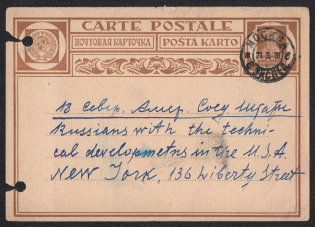 CARTE POSTALE
ПОЧТОВАЯ КАРТОЧКА POŜTA KARTO
МОСКВА
В Север. Амер. Соед Штаты
Russians with the techni-
cal developmetns in the U.S.A.
New York, 136 Liberty Street